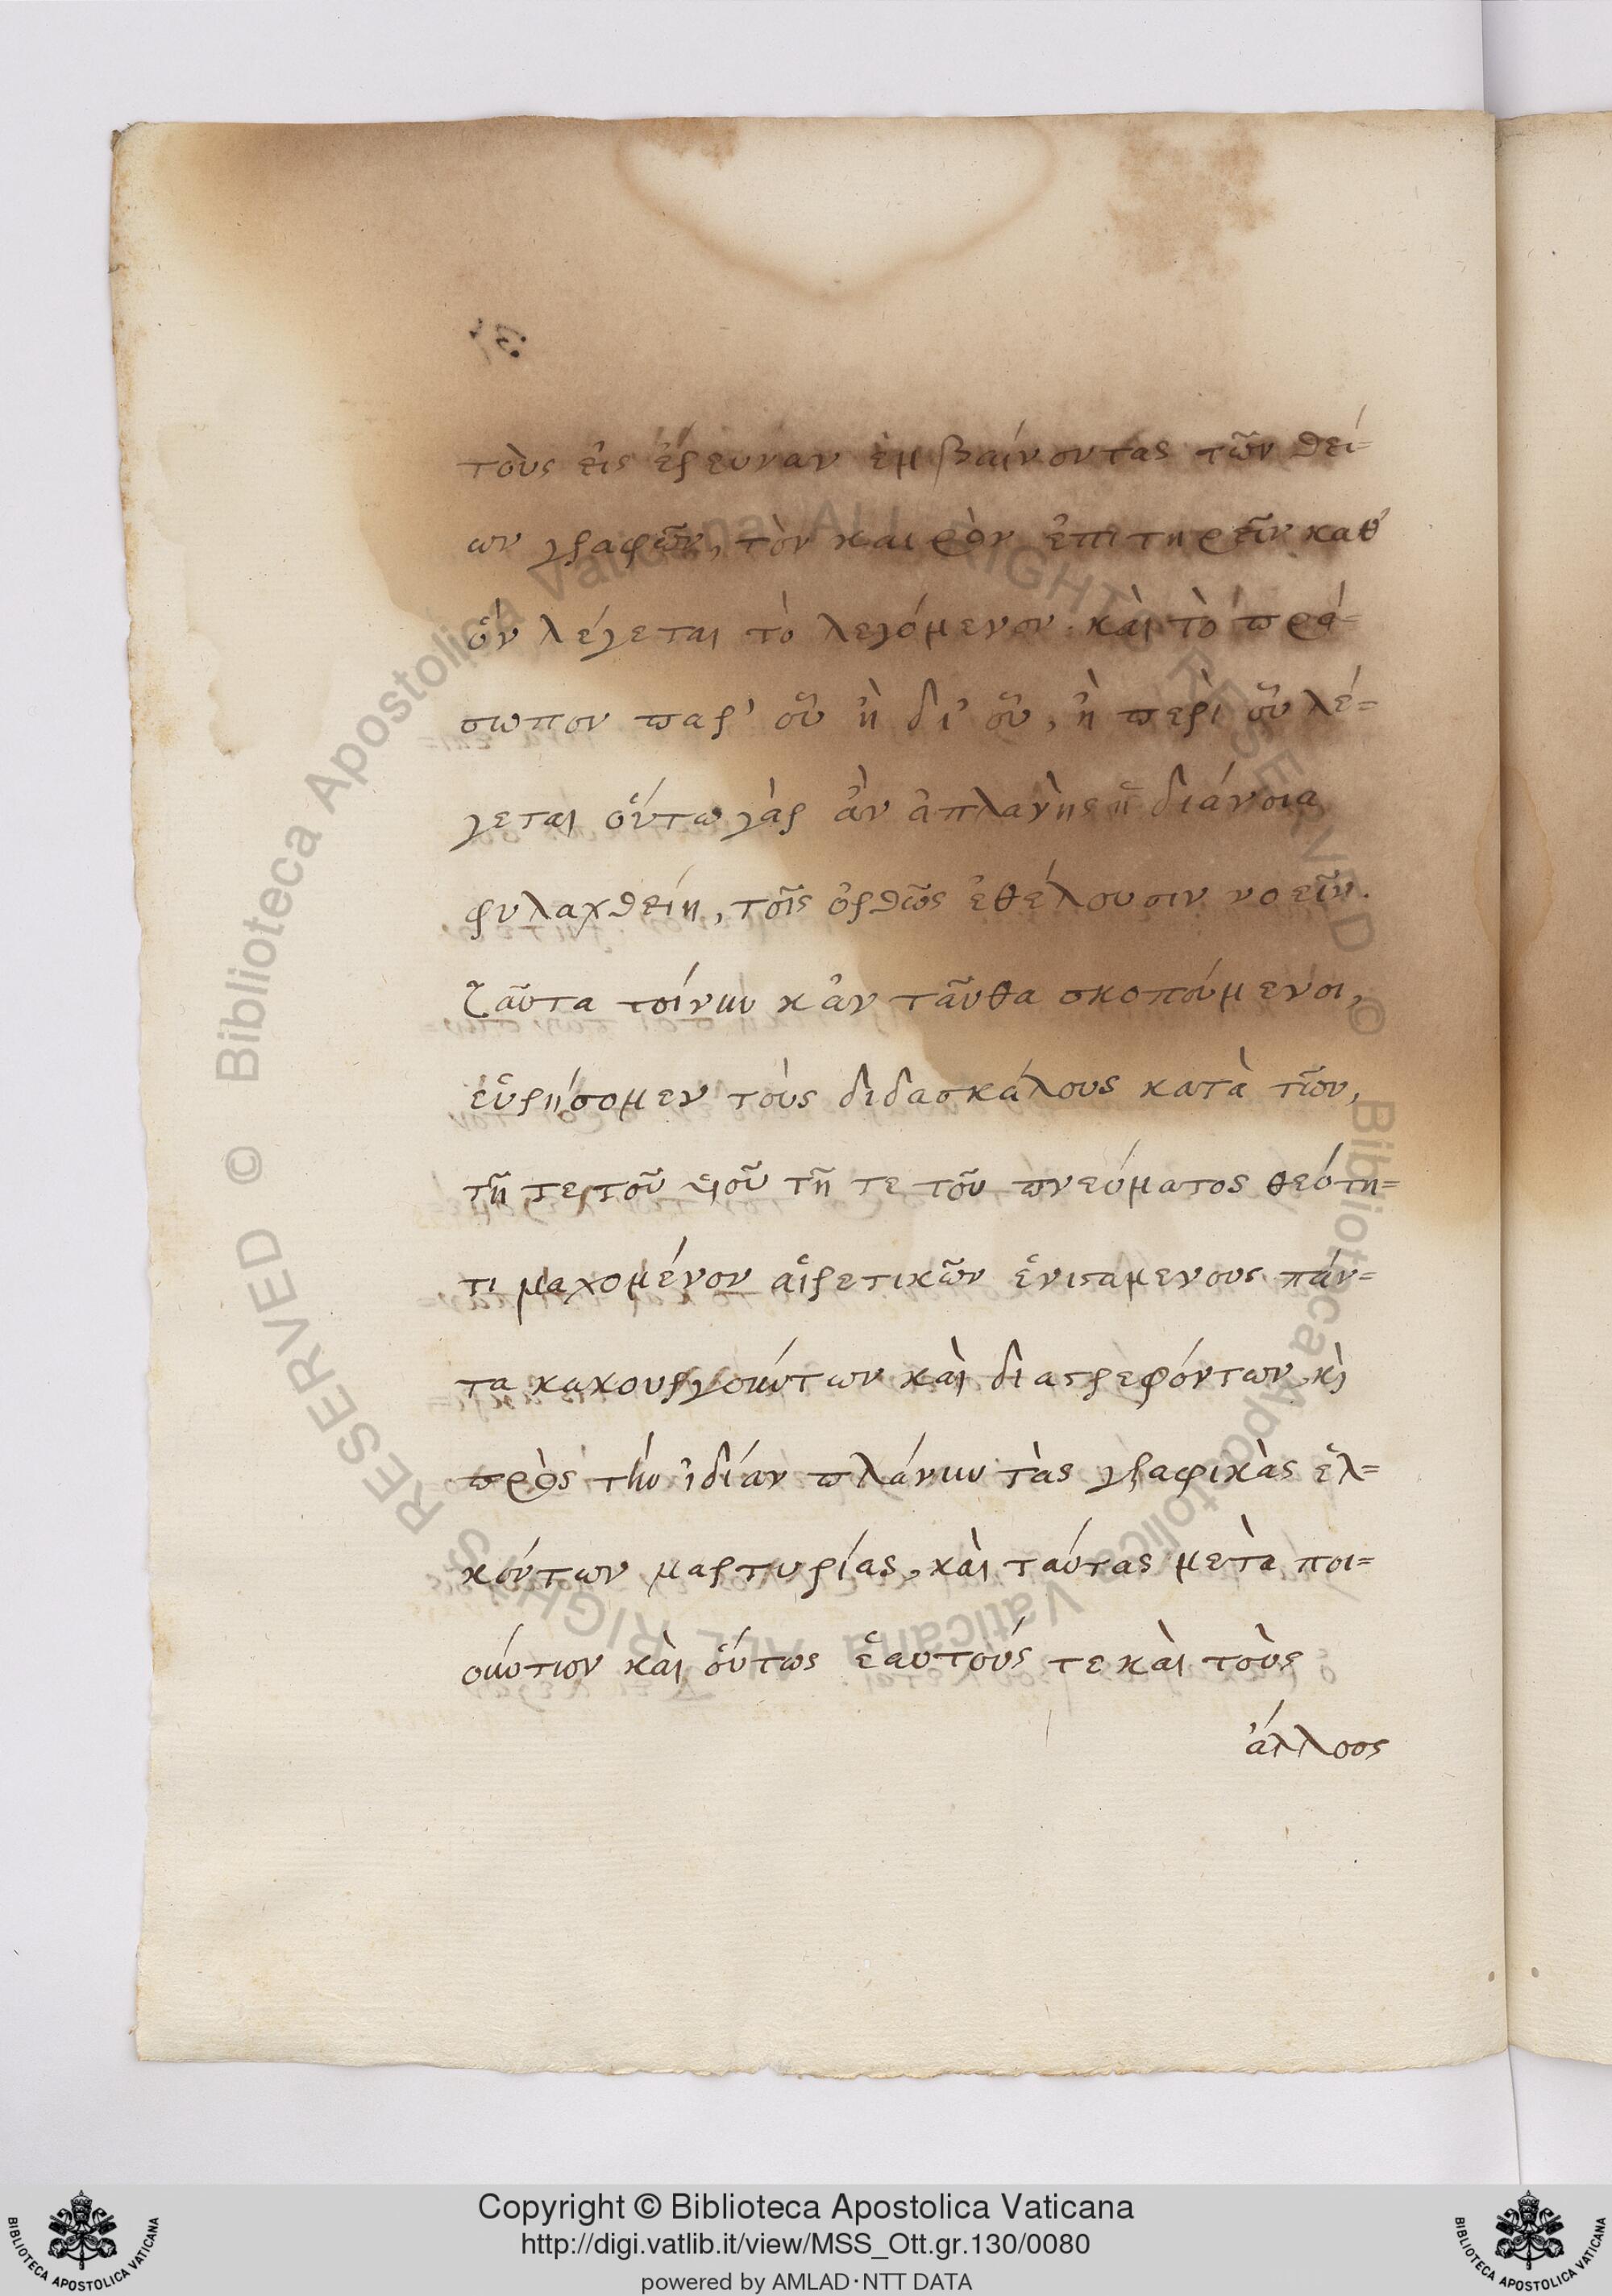 τοὺς εἰς ἔρευναν ἐμβαίνοντας τῶν θεί=
ων γραφῶν, τὸν καιρὸν ἐπιτηρεῖν καθ'
ὃν λέγεται τὸ λεγόμενον. καὶ τὸ πρό=
σωπον παρ' οὗ ἢ δι' οὗ, ἢ περὶ οὗ λέ=
γεται οὕτω γὰρ ἂν ἀπλανὴς ἡ διάνοια
φυλαχθείη, τοῖς ὀρθῶς ἐθέλουσιν νοεῖν.
ταῦτα τοίνυν κἀν ταῦθα σκοπούμενοι,
εὑρήσομεν τοὺς διδασκάλους κατὰ τῶν,
τῇ τε τοῦ υἱοῦ τῇ τε τοῦ πνεύματος θεότη=
τι μαχομένον αἱρετικῶν ἐνισταμενους πάν=
τα κακουργούντων καὶ διαστρεφόντων κὶ
πρὸς τὴν ἰδίαν πλάνην τὰς γραφικὰς ἑλ=
κόντων μαρτυρίας, καὶ ταύτας μεταποι=
ούντων καὶ οὕτως ἑαυτούς τε καὶ τοὺς
ἄλλοος
Copyright © Biblioteca Apostolica Vaticana
http://digi.vatlib.it/view/MSS_Ott.gr.130/0080
powered by AMLAD·NTT DATA
BIBLIOTECA APOSTOLICA VATICANA
BIBLIOTECA APOSTOLICA VATICANA
Biblioteca Apostolica Vaticana ALL RIGHTS RESERVED ©
Biblioteca Apostolica Vaticana ALL RIGHTS RESERVED ©